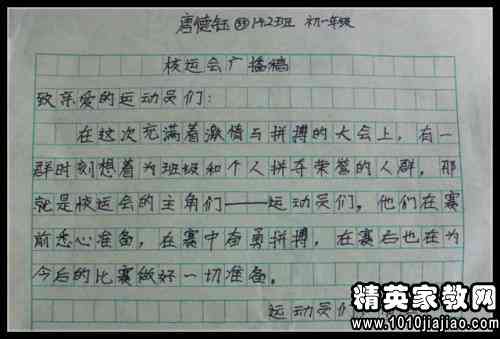 唐健钰 142班 初一年级
校运会广播稿
致亲爱的运动员们：
在这次充满着激情与拼搏的大会上，有一
群时刻想着为班级和个人拼夺荣誉的人群，那
就是校运会的主角们——运动员们，他们在赛
前悉心准备，在赛中奋勇拼搏，在赛后也在为
今后的比赛做好一切准备。
运动员们
精英家教网
www.1010jiajiao.com